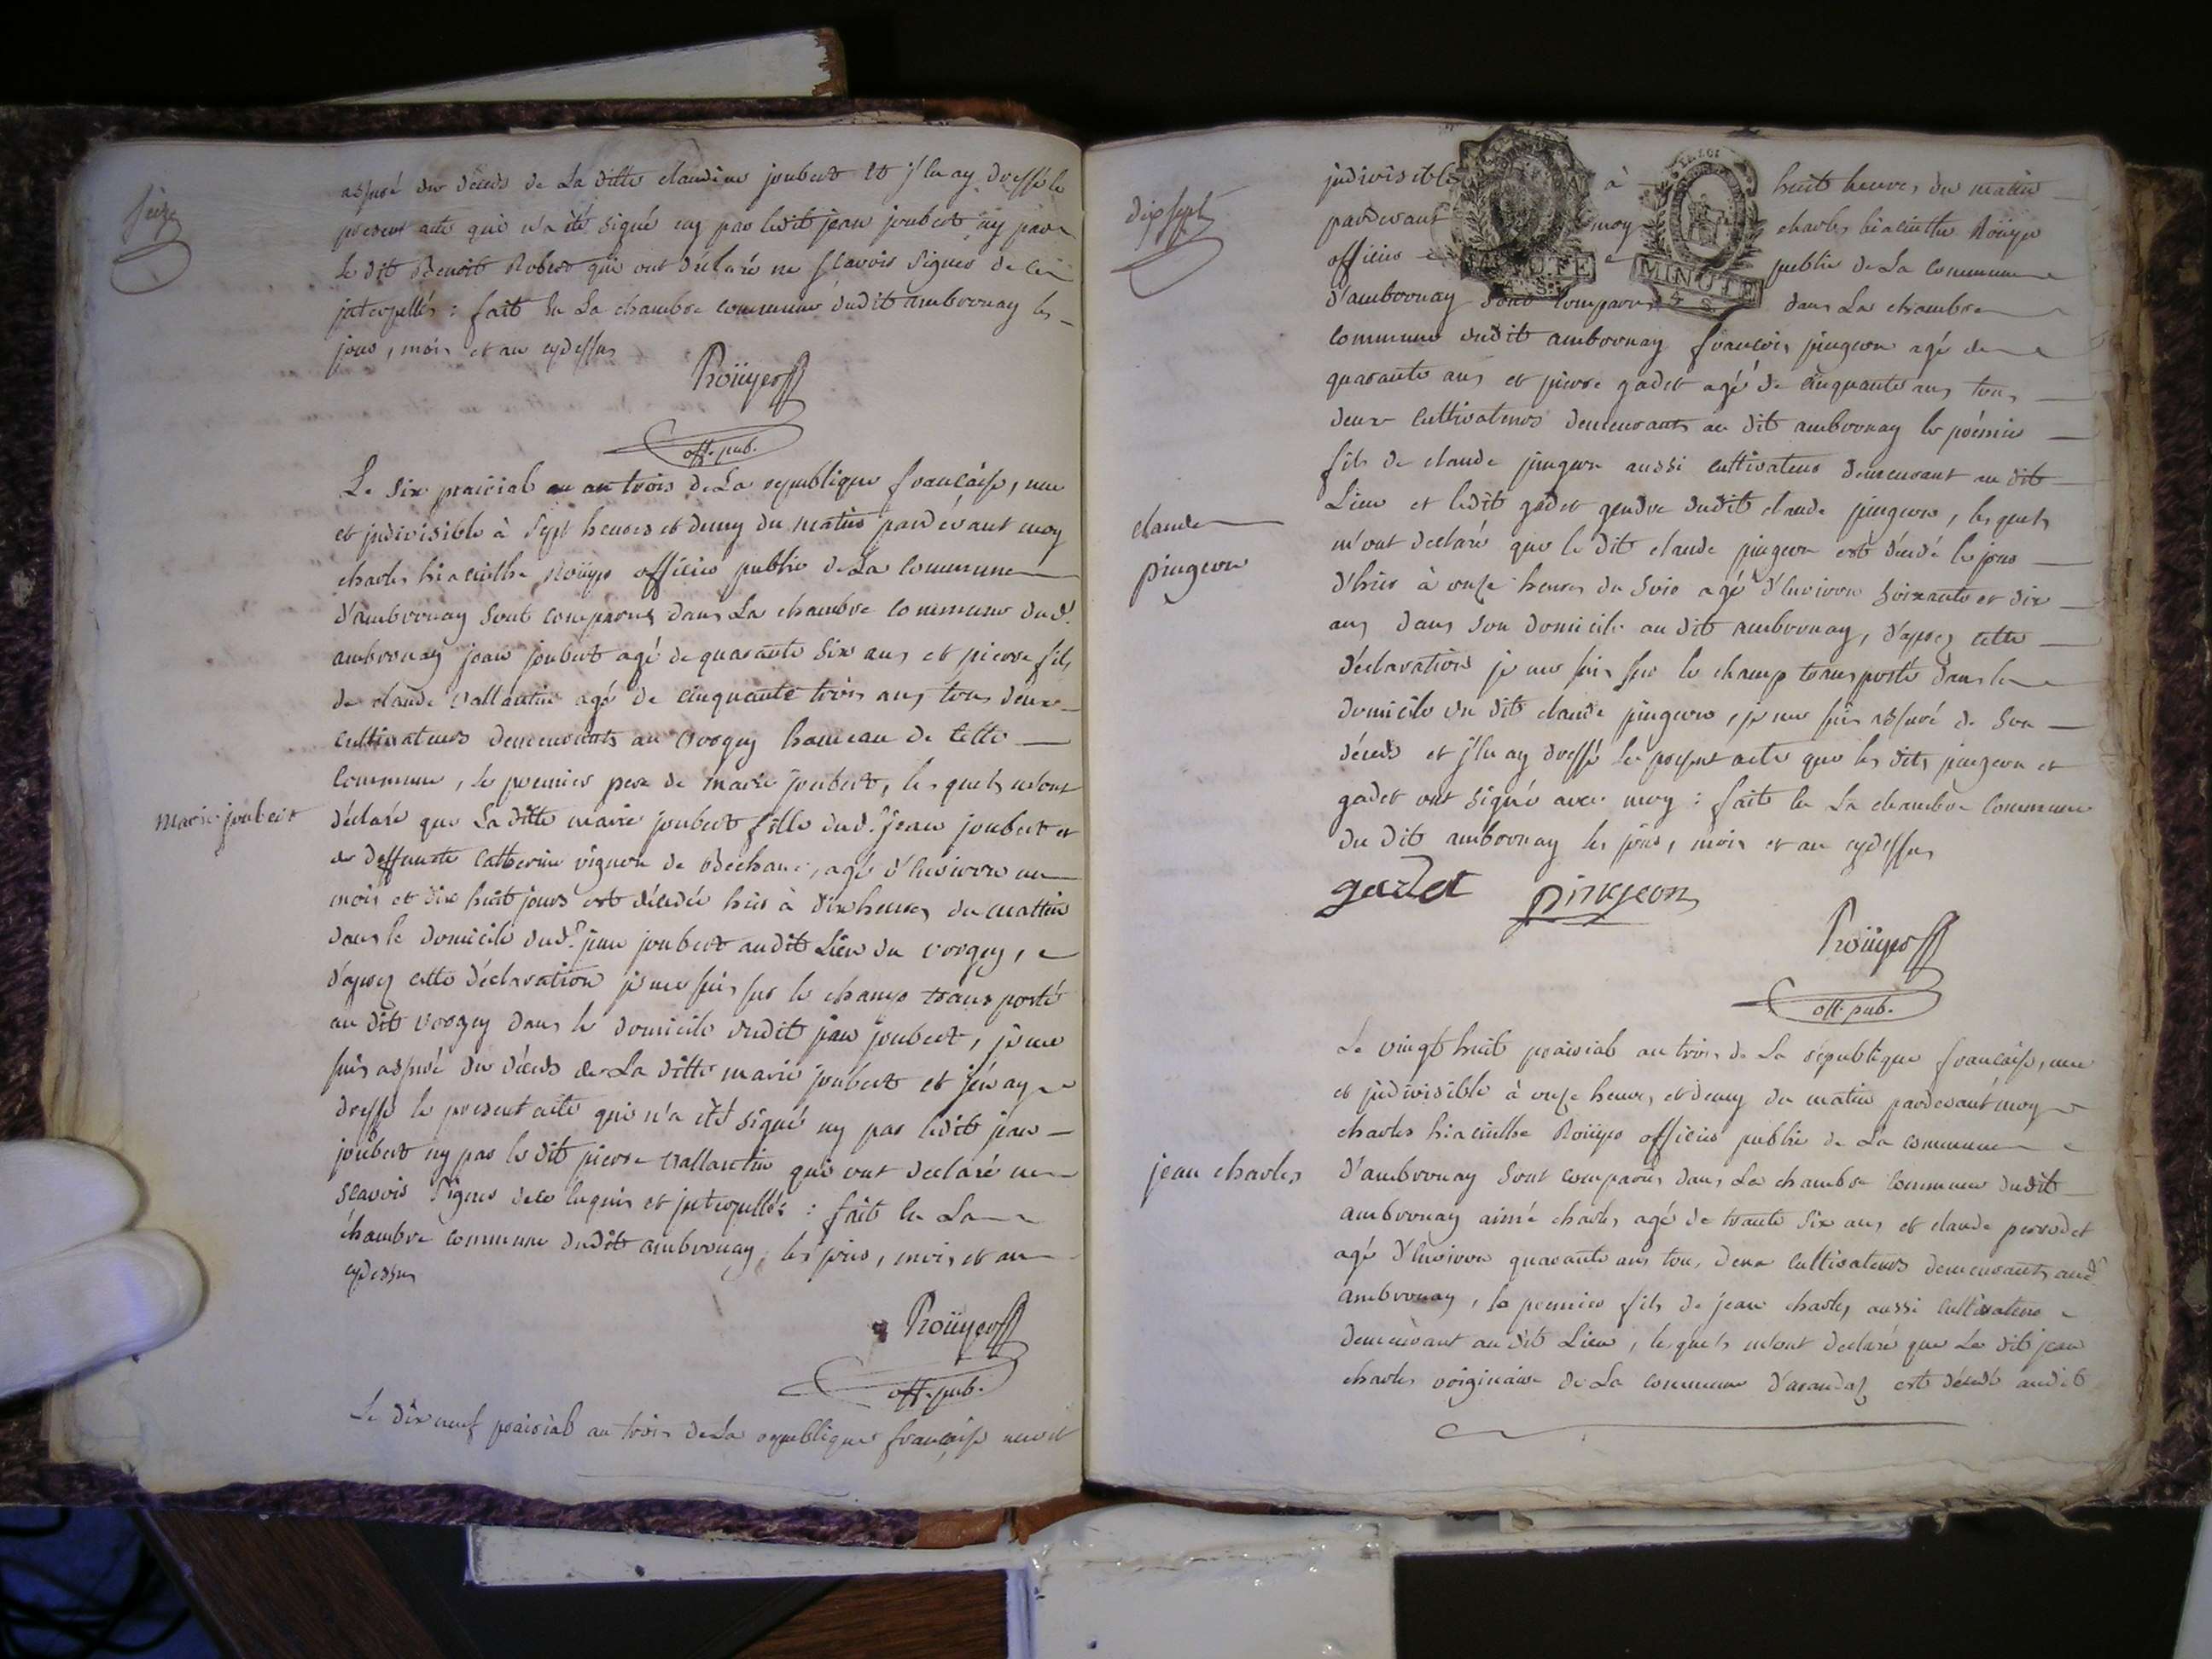 seize
assuré du décès de La ditte claudine joubert et j'en ay dressé le
present acte qui n'a été signé ny par ledit jean joubert ny par
le dit Benoit Robert qui ont déclaré ne sçavoir signer de ce
interpellés : fait en La chambre commune dudit ambronay les
jour, mois et an cydessus
Roüyer
off. pub.
Le six prairial an trois de La republique française, une
et indivisible à sept heures et demy du matin pardevant moy
charles hiacinthe Roüyer officier public de La commune
d'ambronay sont comparus dans La chambre commune dud.
ambronay jean joubert agé de quarante six ans et pierre fils
de claude vallantin agé de cinquante trois ans, tous deux
cultivateurs demeurants au vorgey hameau de cette
commune, le premier pere de marie joubert, lesquels m'ont
marie joubert
déclaré que La ditte marie joubert fille dud. jean joubert et
de deffunte catherine vignon de , agé d'environ un
mois et dix huit jours est décédée hier à dix heures du mattin
dans le domicile dud. jean joubert audit Lieu du vorgey,
d'aprez cette déclaration je me suis sur le champ transporté
au dit vorgey dans le domicile dudit jean joubert, je me
suis assuré du décès de La ditte marie joubert et j'en ay
dressé le present acte qui n'a été signé ny par ledit jean
joubert ny par le dit pierre vallantin qui ont declaré ne
scavoir signer de ce enquis et interpellés : fait en La
chambre commune dudit ambronay, les jour, mois et an
cydessus
Roüyer
off. pub.
Le dix neuf prairial an trois de La republique française une et
dix sept
indivisible à huit heures du matin
pardevant moy charles hiacinthe Roüyer
officier public de La commune
MINUTE
4 S.
d'ambronay sont comparus dans La chambre
commune dudit ambronay françois pingeon agé de
quarante ans et pierre gadet agé de cinquante ans tous
deux cultivateurs demeurants au dit ambronay le premier
fils de claude pingeon aussi cultivateur demeurant au dit
Lieu et ledit gadet gendre dudit claude pingeon, lesquels
claude
pingeon
m'ont declaré que le dit claude pingeon est décédé le jour
d'hier à onze heures du soir agé d'environ soixante et dix
ans dans son domicile au dit ambronay, d'aprez cette
déclaration je me suis sur le champ transporté dans le
domicile du dit claude pingeon, je me suis assuré de son
décès et j'en ay dressé le present acte que les dits pingeon et
gadet ont signé avec moy : fait en La chambre commune
du dit ambronay les jour, mois et an cydessus
gadet pingeon
Roüyer
off. pub.
Le vingt huit prairial an trois de La republique française, une
et indivisible à onze heures et demy du matin pardevant moy
charles hiacinthe Roüyer officier public de La commune
jean charles
d'ambronay sont comparus dans La chambre commune dudit
ambronay aimé charles agé de trante six ans et claude perrodet
agé d'environ quarante ans tous deux cultivateurs demeurants aud.
ambronay, le premier fils de jean charles aussi cultivateur
demeurant au dit Lieu, lesquels m'ont declaré que Le dit jean
charles originaire de La commune d'arandas est décédé audit